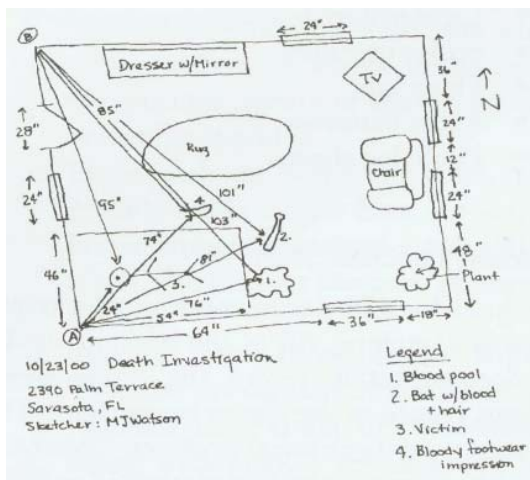 B
24"
Dresser w/Mirror
TV
36"
N
85"
28"
24"
12"
Rug
Chair
24"
24"
101"
4.
95"
103"
2.
48"
74"
46"
81"
Plant
3.
1.
24"
76"
54"
A
64"
36"
18"
10/23/00 Death Invastigation
2390 Palm Terrace
Sarasota, FL
Sketcher: MJWatson
Legend
1. Blood pool
2. Bat w/blood
+ hair
3. Victim
4. Bloody footwear
impression